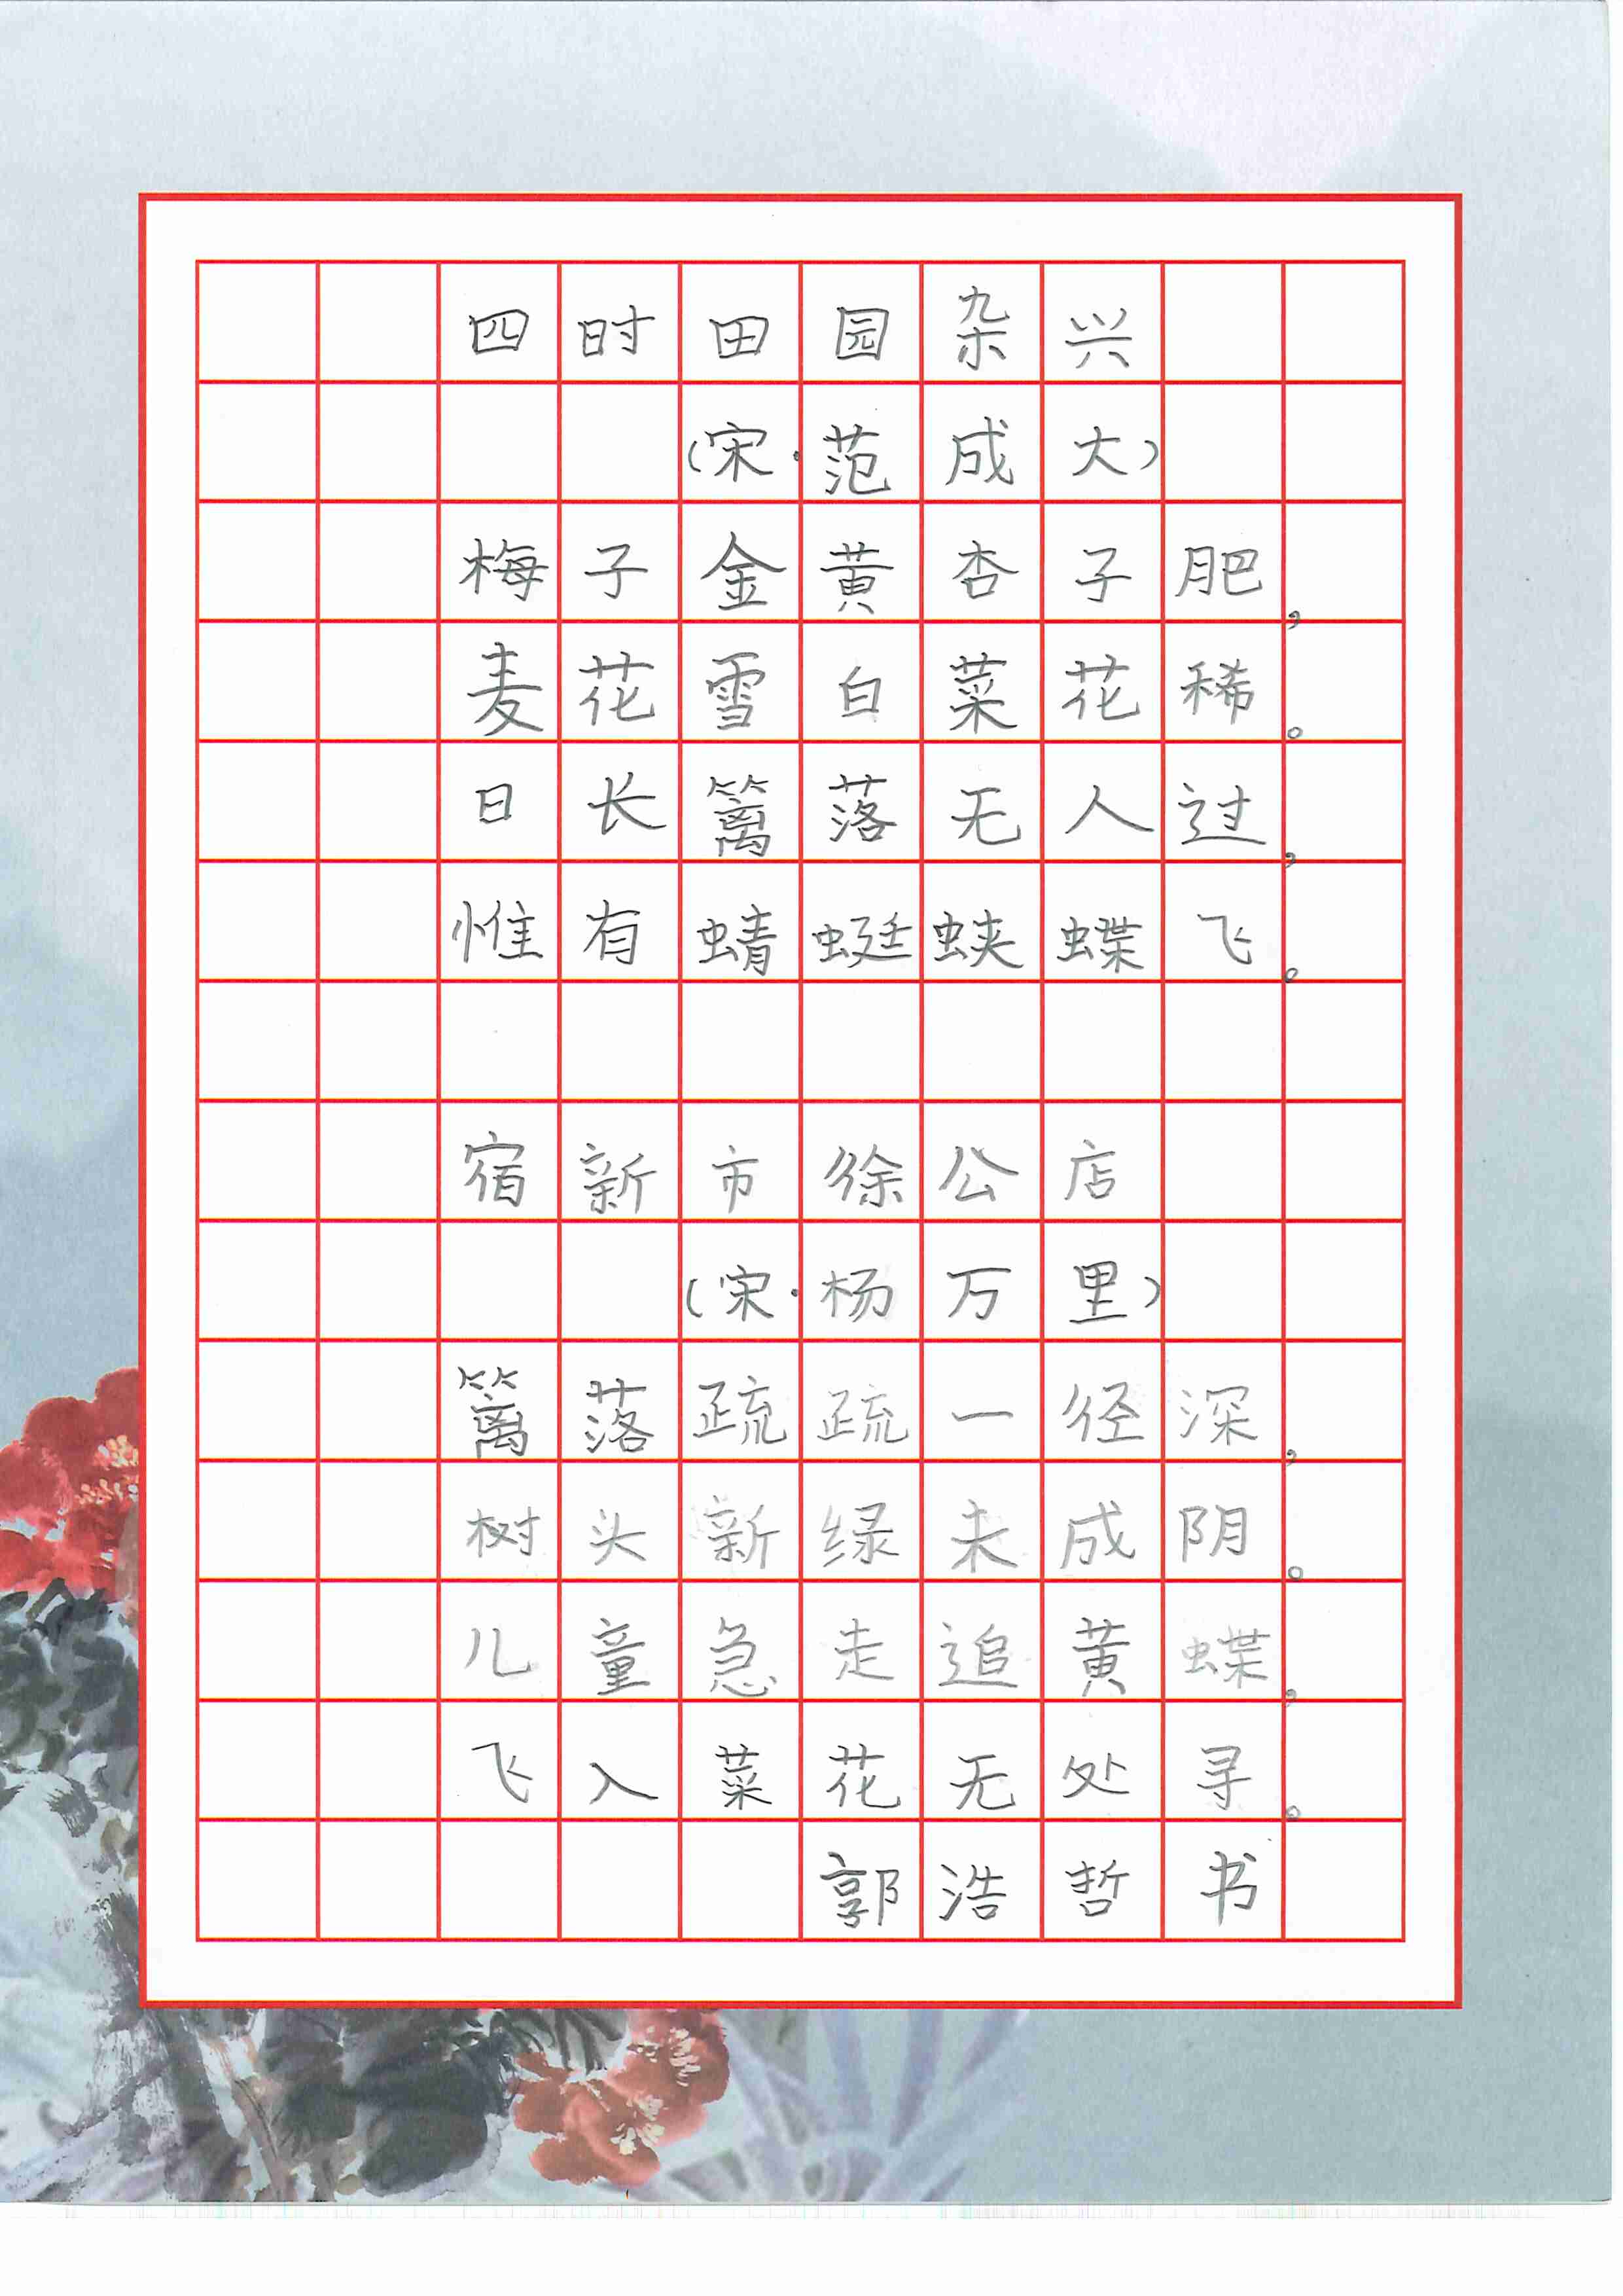 四时田园杂兴
(宋·范成大)
梅子金黄杏子肥,
麦花雪白菜花稀。
日长篱落无人过,
惟有蜻蜓蛱蝶飞。
宿新市徐公店
(宋·杨万里)
篱落疏疏一径深,
树头新绿未成阴。
儿童急走追黄蝶,
飞入菜花无处寻。
郭浩哲书